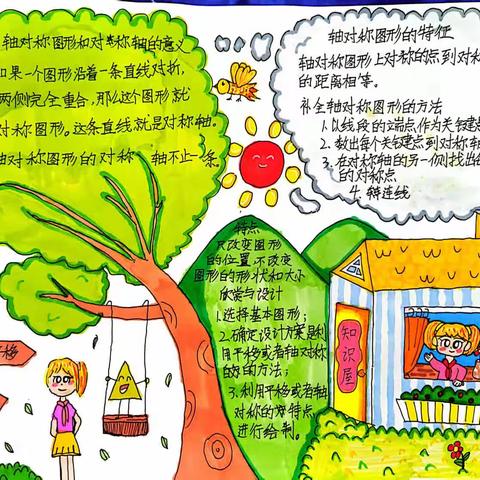 轴对称图形和对称轴的意义
如果一个图形沿着一条直线对折,
两侧完全重合,那么这个图形就
对称图形。这条直线就是对称轴。
轴对称图形的对称 轴不止一条
轴对称图形的特征
轴对称图形上对称的点到对称
的距离相等。
补全轴对称图形的方法
1.以线段的端点作为关键点
2.数出每个关键点到对称轴
3.在对称轴的另一侧找出
的对称点
4.连线
特点
只改变图形
的位置,不改变
图形的形状和大小
欣赏与设计
1.选择基本图形;
2.确定设计方案是利
用平移或者轴对称
的方法;
3.利用平移或者轴
对称的特点
进行绘制。
知识屋
平移